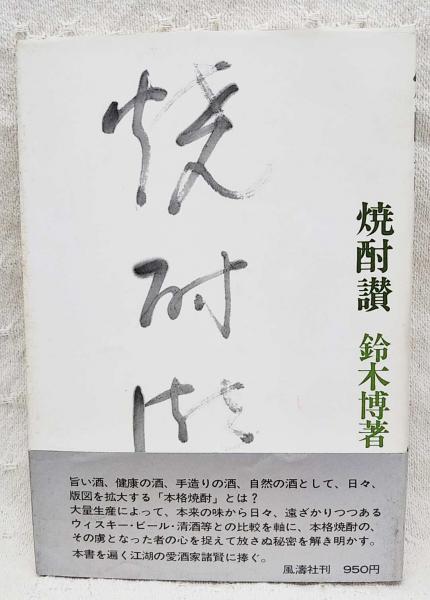 焼酎讃
焼酎讃
鈴木博著
旨い酒、健康の酒、手造りの酒、自然の酒として、日々、
版図を拡大する「本格焼酎」とは？
大量生産によって、本来の味から日々、遠ざかりつつある
ウィスキー・ビール・清酒等との比較を軸に、本格焼酎の、
その虜となった者の心を捉えて放さぬ秘密を解き明かす。
本書を遍く江湖の愛酒家諸賢に捧ぐ。
風濤社刊 950円